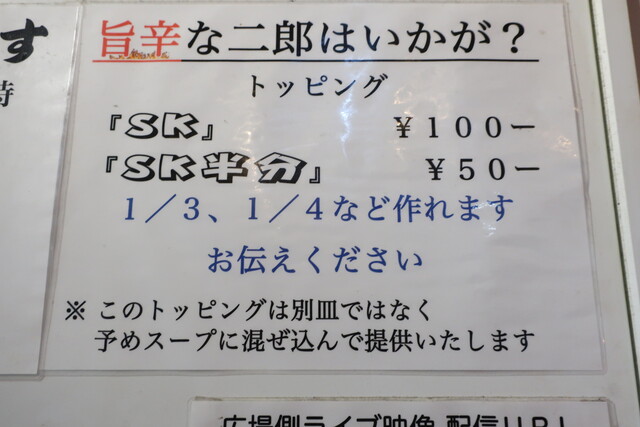 す
時
旨辛な二郎はいかが？
トッピング
『SK』 ￥１００ー
『SK半分』 ￥５０ー
１／３、１／４など作れます
お伝えください
※ このトッピングは別皿ではなく
予めスープに混ぜ込んで提供いたします
広場側ライブ映像 配信URL